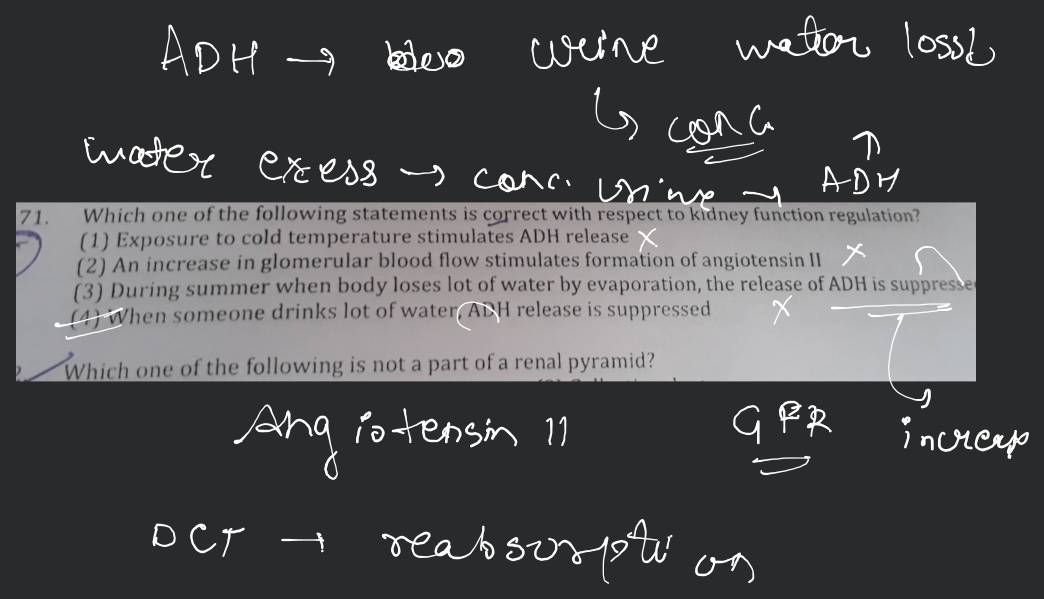 ADH → urine water loss
↳ conc.
water exess → conc. urine → ADH ↑
71. Which one of the following statements is correct with respect to kidney function regulation?
(1) Exposure to cold temperature stimulates ADH release ×
(2) An increase in glomerular blood flow stimulates formation of angiotensin II ×
(3) During summer when body loses lot of water by evaporation, the release of ADH is suppresse ×
(4) When someone drinks lot of water, ADH release is suppressed
Which one of the following is not a part of a renal pyramid?
Angiotensin II GFR
DCT → reabsorption